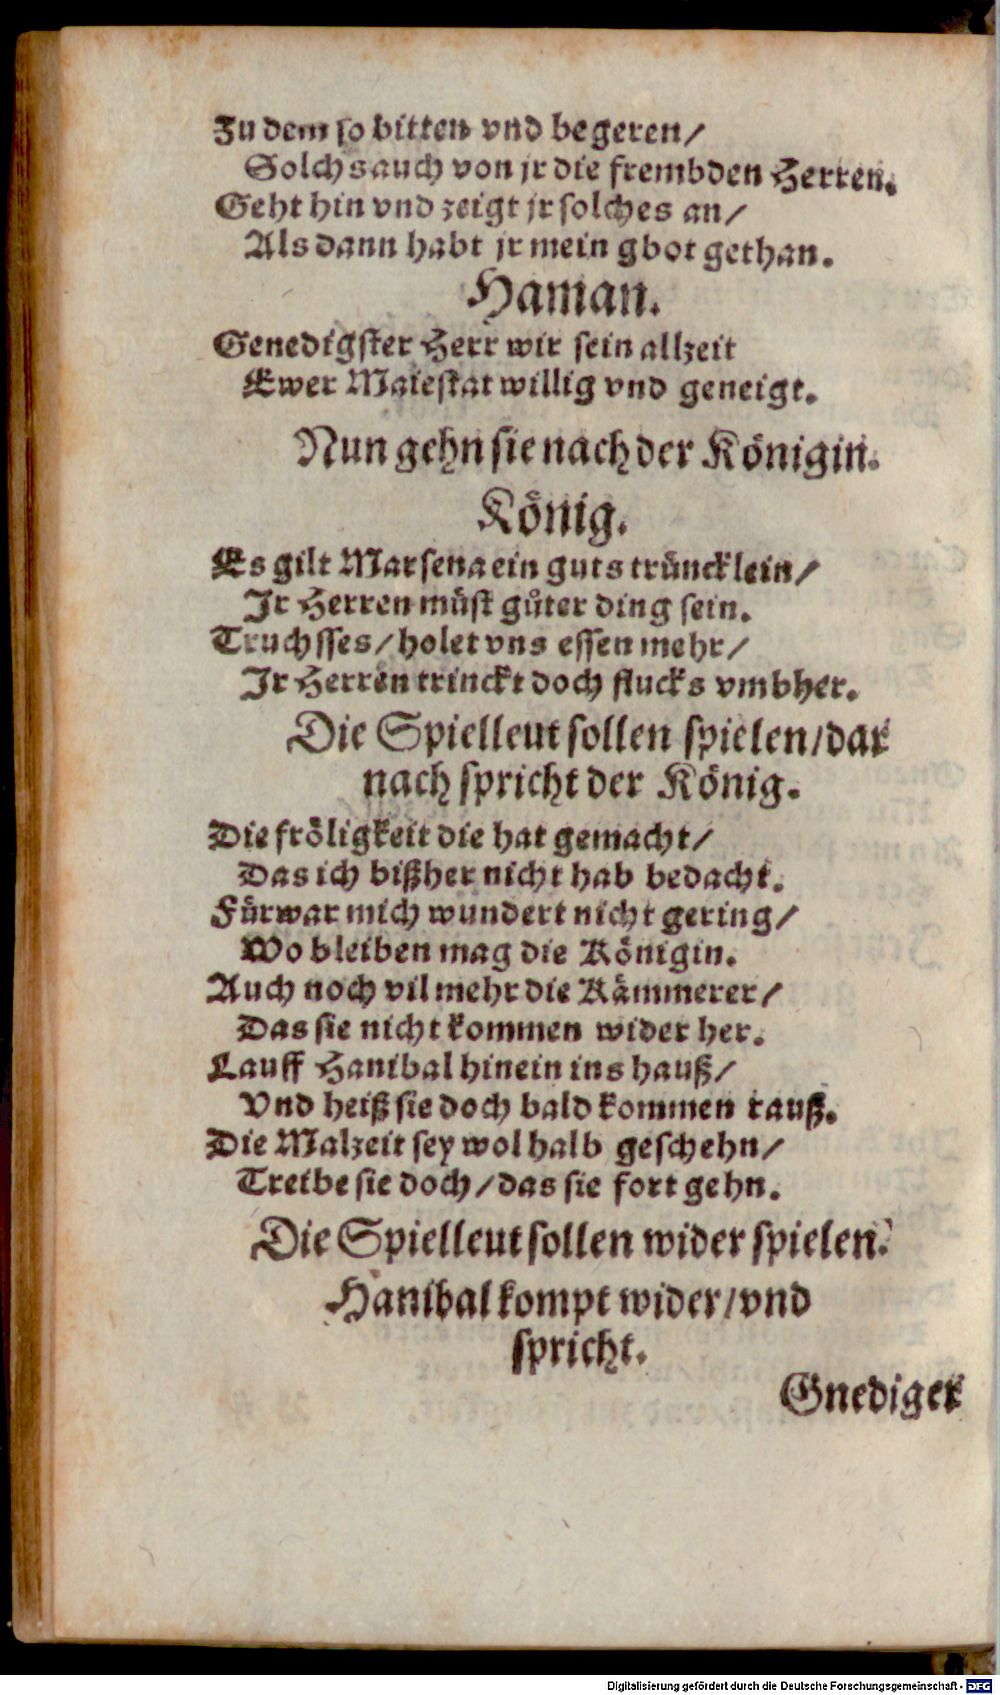 Zu dem so bitten vnd begeren/
Solchs auch von jr die frembden Herren.
Geht hin vnd zeigt jr solches an/
Als dann habt jr mein gbot gethan.
Haman.
Genedigster Herr wir sein allzeit
Ewer Maiestat willig vnd geneigt.
Nun gehn sie nach der Königin.
König.
Es gilt Marsena ein guts trüncklein/
Jr Herren müst gůter ding sein.
Truchsses/ holet vns essen mehr/
Jr Herren trinckt doch flucks vmbher.
Die Spielleut sollen spielen/dar
nach spricht der König.
Die fröligkeit die hat gemacht/
Das ich bißher nicht hab bedacht.
Fürwar mich wundert nicht gering/
Wo bleiben mag die Königin.
Auch noch vil mehr die Kämmerer/
Das sie nicht kommen wider her.
Lauff Hanibal hinein ins hauß/
Vnd heiß sie doch bald kommen rauß.
Die Malzeit sey wol halb geschehn/
Treibe sie doch/das sie fort gehn.
Die Spielleut sollen wider spielen.
Hanibal kompt wider/vnd
spricht.
Gnediger
Digitalisierung gefördert durch die Deutsche Forschungsgemeinschaft - DFG